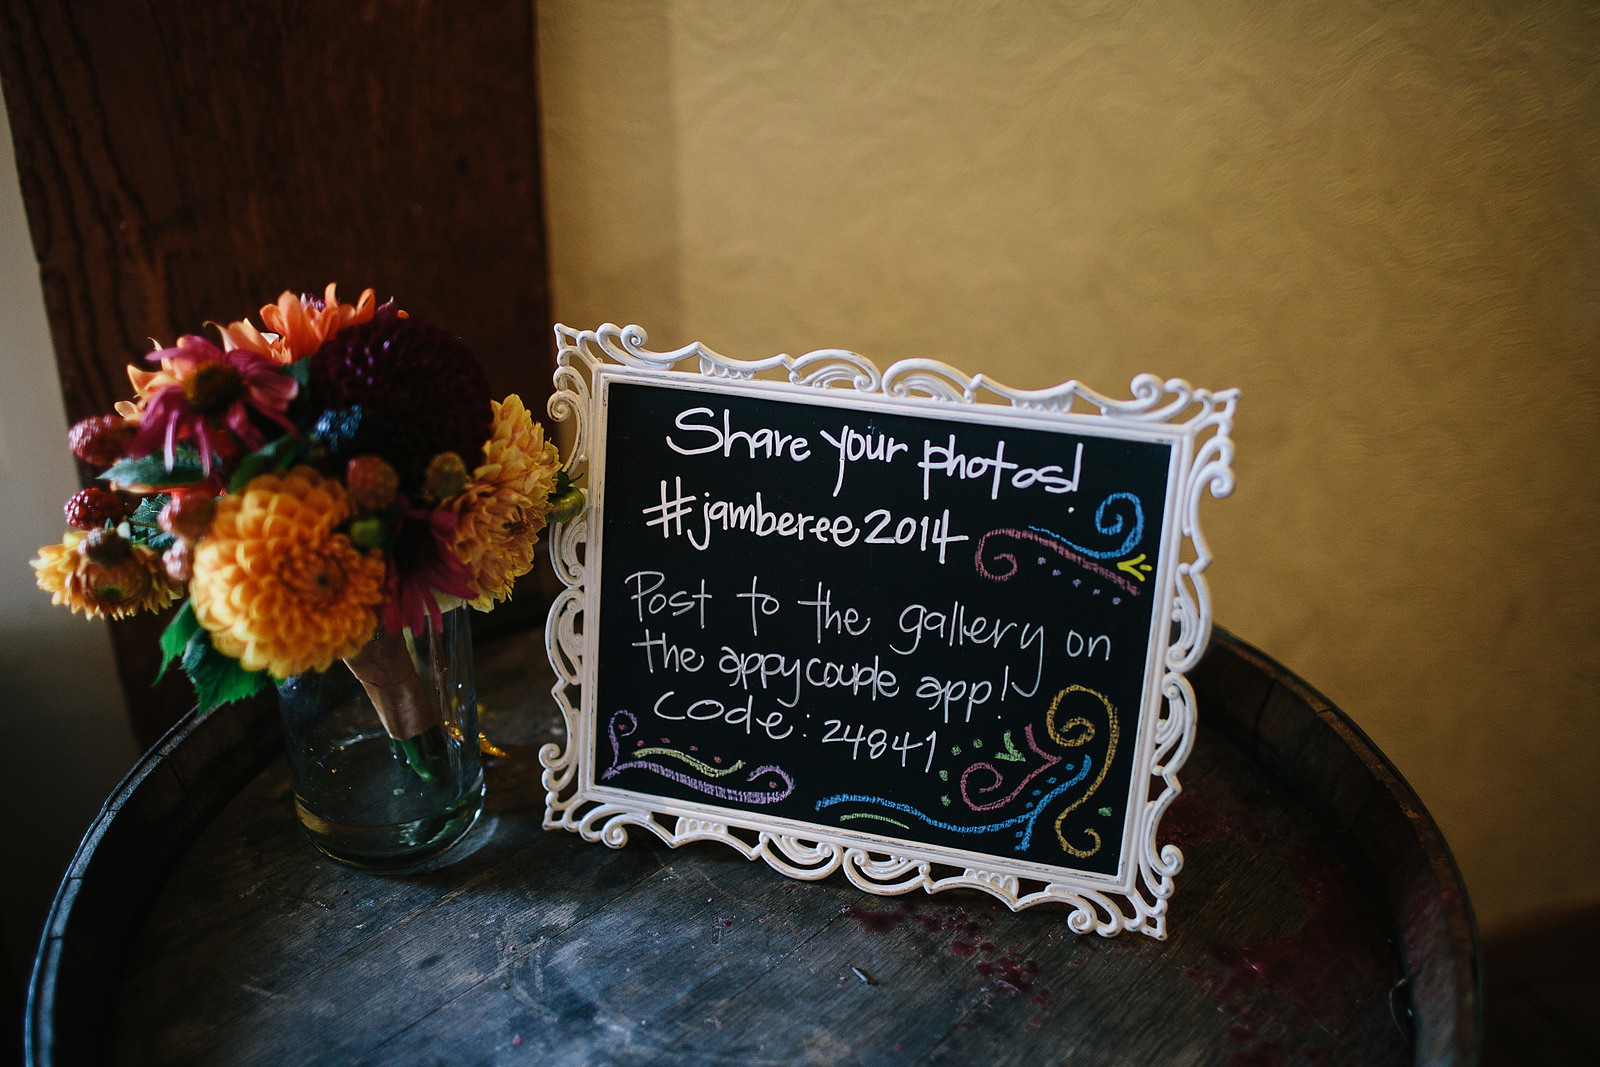 Share your photos!
#jamberee2014
Post to the gallery on
the appycouple app!
Code: 24841